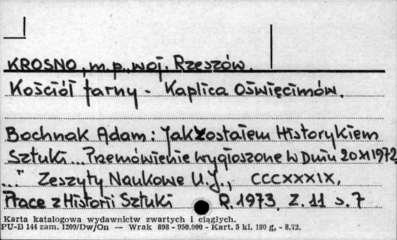 KROSNO, m.p. woj. Rzeszów.
Kościół farny - Kaplica Oświęcimów.
Bochnak Adam: Jak zostałem Historykiem
Sztuki... Przemówienie wygłoszone w Dniu 20 XI 1972
..." Zeszyty Naukowe U.J., CCCXXXIX,
Prace z Historii Sztuki R. 1973, Z. 11 s. 7
Karta katalogowa wydawnictw zwartych i ciągłych.
PU-B 144 zam. 1209/Dw/On — Wrak 898 - 950.000 - Kart. 5 kl. 180 g, - 8.72.